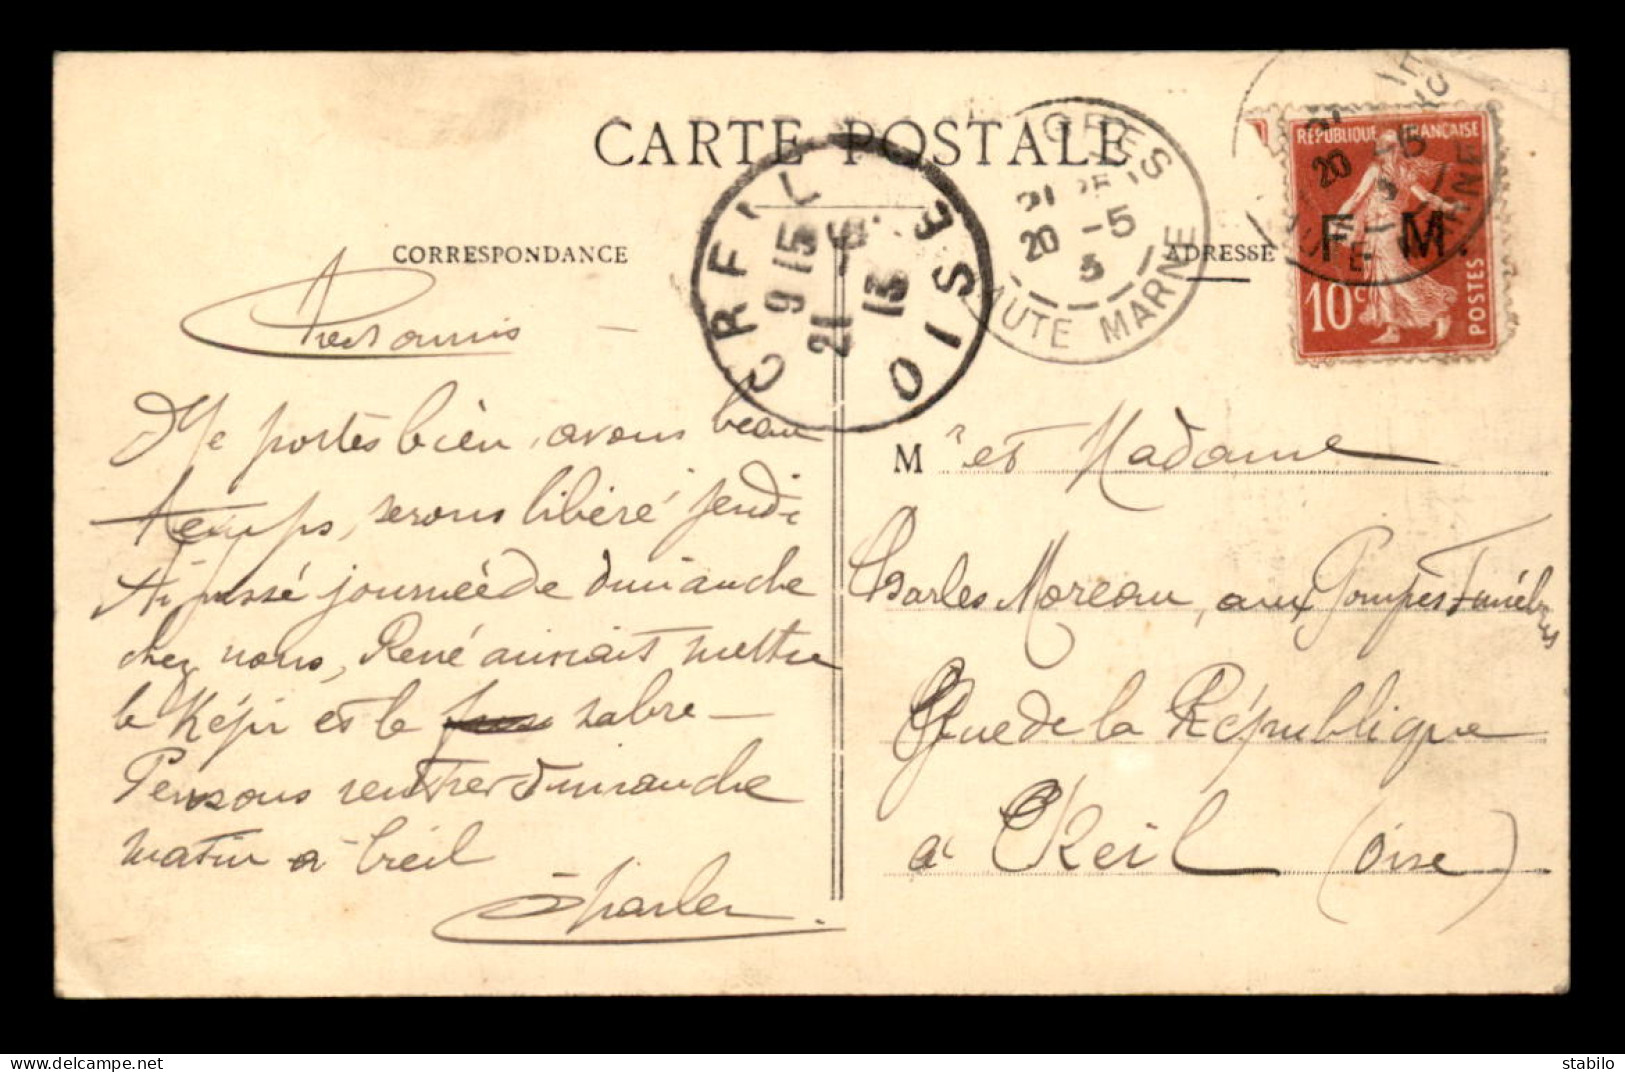 CARTE POSTALE
CORRESPONDANCE
ADRESSE
CREIL
9 15
21 -5
13
OISE
GRES
20 -5
HAUTE MARNE
RÉPUBLIQUE FRANÇAISE
20 -5
F. M.
10c
POSTES
Chers amis —
Me portes bien, avons beau
temps, serons libéré jeudi
Ai passé journée de dimanche
chez nous, René aimait mettre
le Képi et le sabre —
Pensons rentrer dimanche
matin a Creil
Charles
M r et Madame
Charles Moreau, aux Pompes Funèbres
Rue de la République
a Creil (Oise)
stabilo
www.delcampe.net